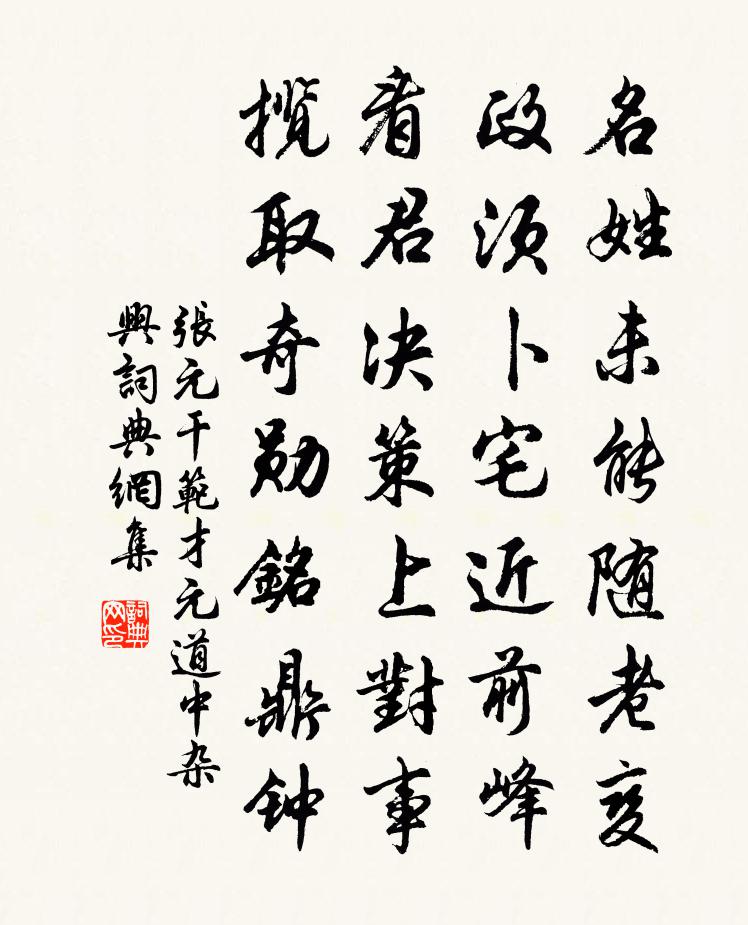 名姓未能随老变
政须卜宅近前峰
看君决策上對事
揽取奇勋銘鼎钟
張元干範才元道中杂
興詞典網集
詞典網印